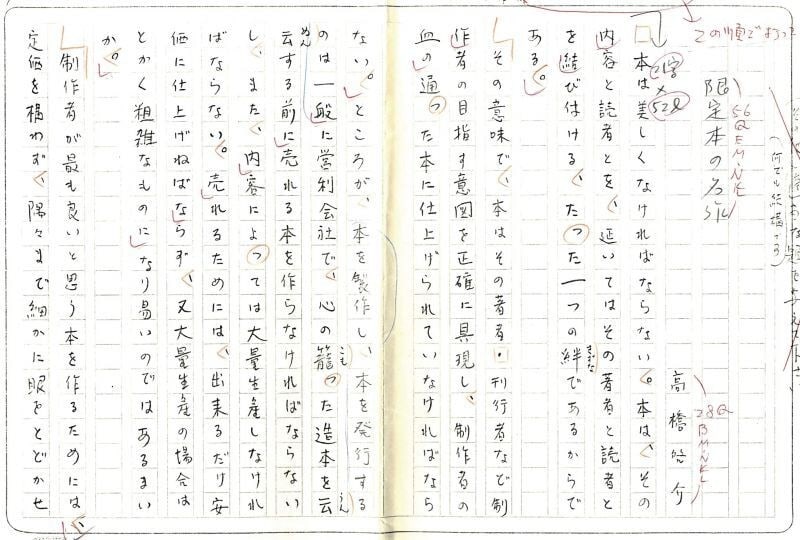 この順でよろ
限定本の名
56Q EM・NKL
何でも結構です
高橋啓介
28Q BM・NKL
21字×52l
本は美しくなければならない。本は、その
内容と読者とを、延いてはその著者と読者と
を結び付ける、たった一つの絆であるからで
きずな
ある。
その意味で、本はその著者・刊行者など制
作者の目指す意図を正確に具現し、制作者の
血の通った本に仕上げられていなければなら
ない。ところが、本を製作し、本を発行する
のは一般に営利会社で、心の籠った造本を云
こも
うん
云する前に売れる本を作らなければならない
ぬん
し、また、内容によっては大量生産しなけれ
ばならない。売れるためには、出来るだけ安
価に仕上げねばならず、又大量生産の場合は
とかく粗雑なものになり易いのではあるまい
か。
制作者が最も良いと思う本を作るためには、
定価を構わず、隅々まで細かに眼をとどかせ